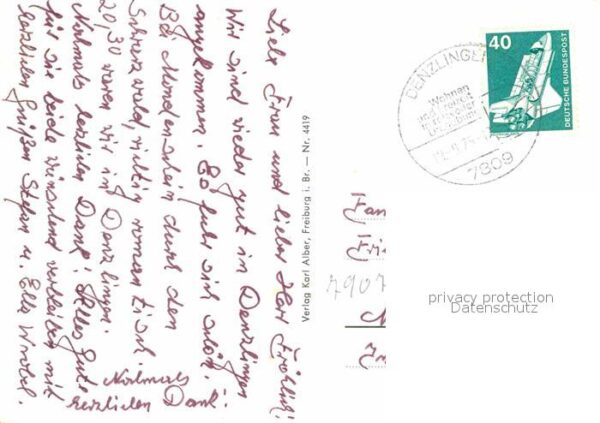 Liebe Frau und lieber Herr Fröhlich!
Wir sind wieder gut in Denzlingen
angekommen. Es fuhr sich schön.
Bei Mondenschein durch den
Schwarzwald, richtig romantisch.
20,30 waren wir in Denzlingen.
Nochmals herzlichen Dank! Alles Gute
für sie beide wünschend verbleiben mit
herzlichen Grüßen Stefan u. Ella
Nochmals
herzlichen Dank!
Verlag Karl Alber, Freiburg i. Br. — Nr. 4419
40
DEUTSCHE BUNDESPOST
DENZLINGEN
Wohnen
7809
Fam
7907
privacy protection
Datenschutz